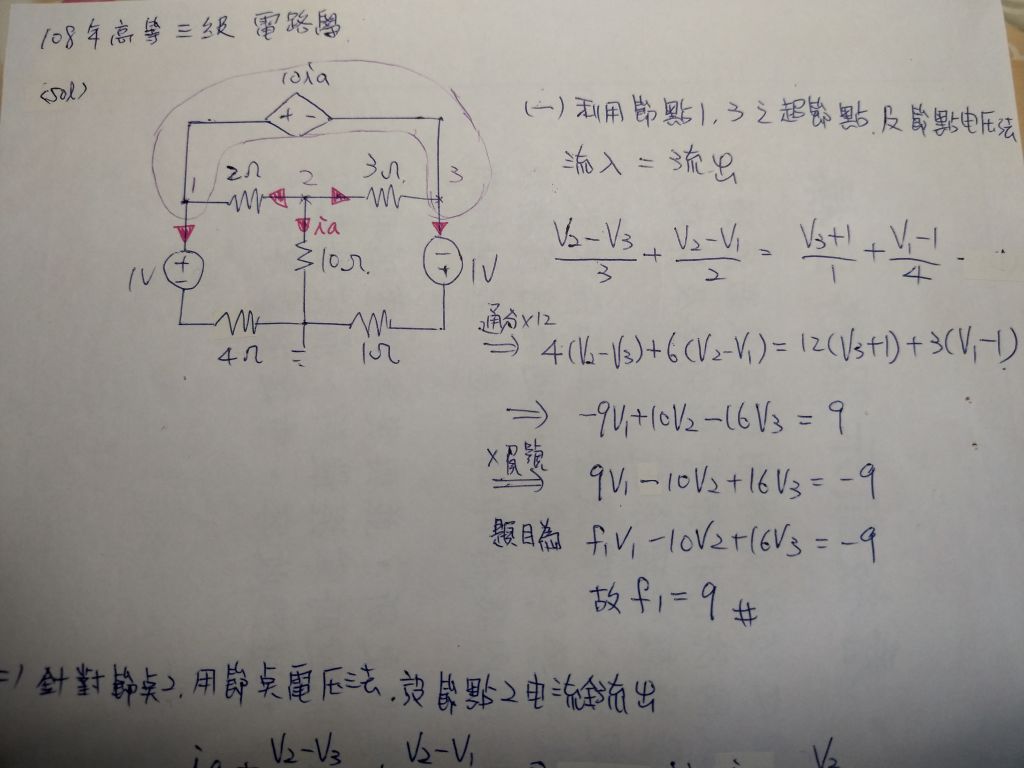 108年高等三級 電路學
(sol)
10ia
+ -
2Ω 2 3Ω
1 3
ia
1V + - 10Ω - + 1V
4Ω 1Ω
(一) 利用節點1, 3之超節點, 及節點电压法
流入 = 流出
(V2-V3)/3 + (V2-V1)/2 = (V3+1)/1 + (V1-1)/4
通分×12
⇒ 4(V2-V3)+6(V2-V1) = 12(V3+1)+3(V1-1)
⇒ -9V1+10V2-16V3 = 9
×負號
⇒ 9V1-10V2+16V3 = -9
題目為 f1V1-10V2+16V3 = -9
故 f1 = 9 #
二) 針對節点2, 用節点電压法, 設節點2电流全流出
V2-V3 V2-V1 V2